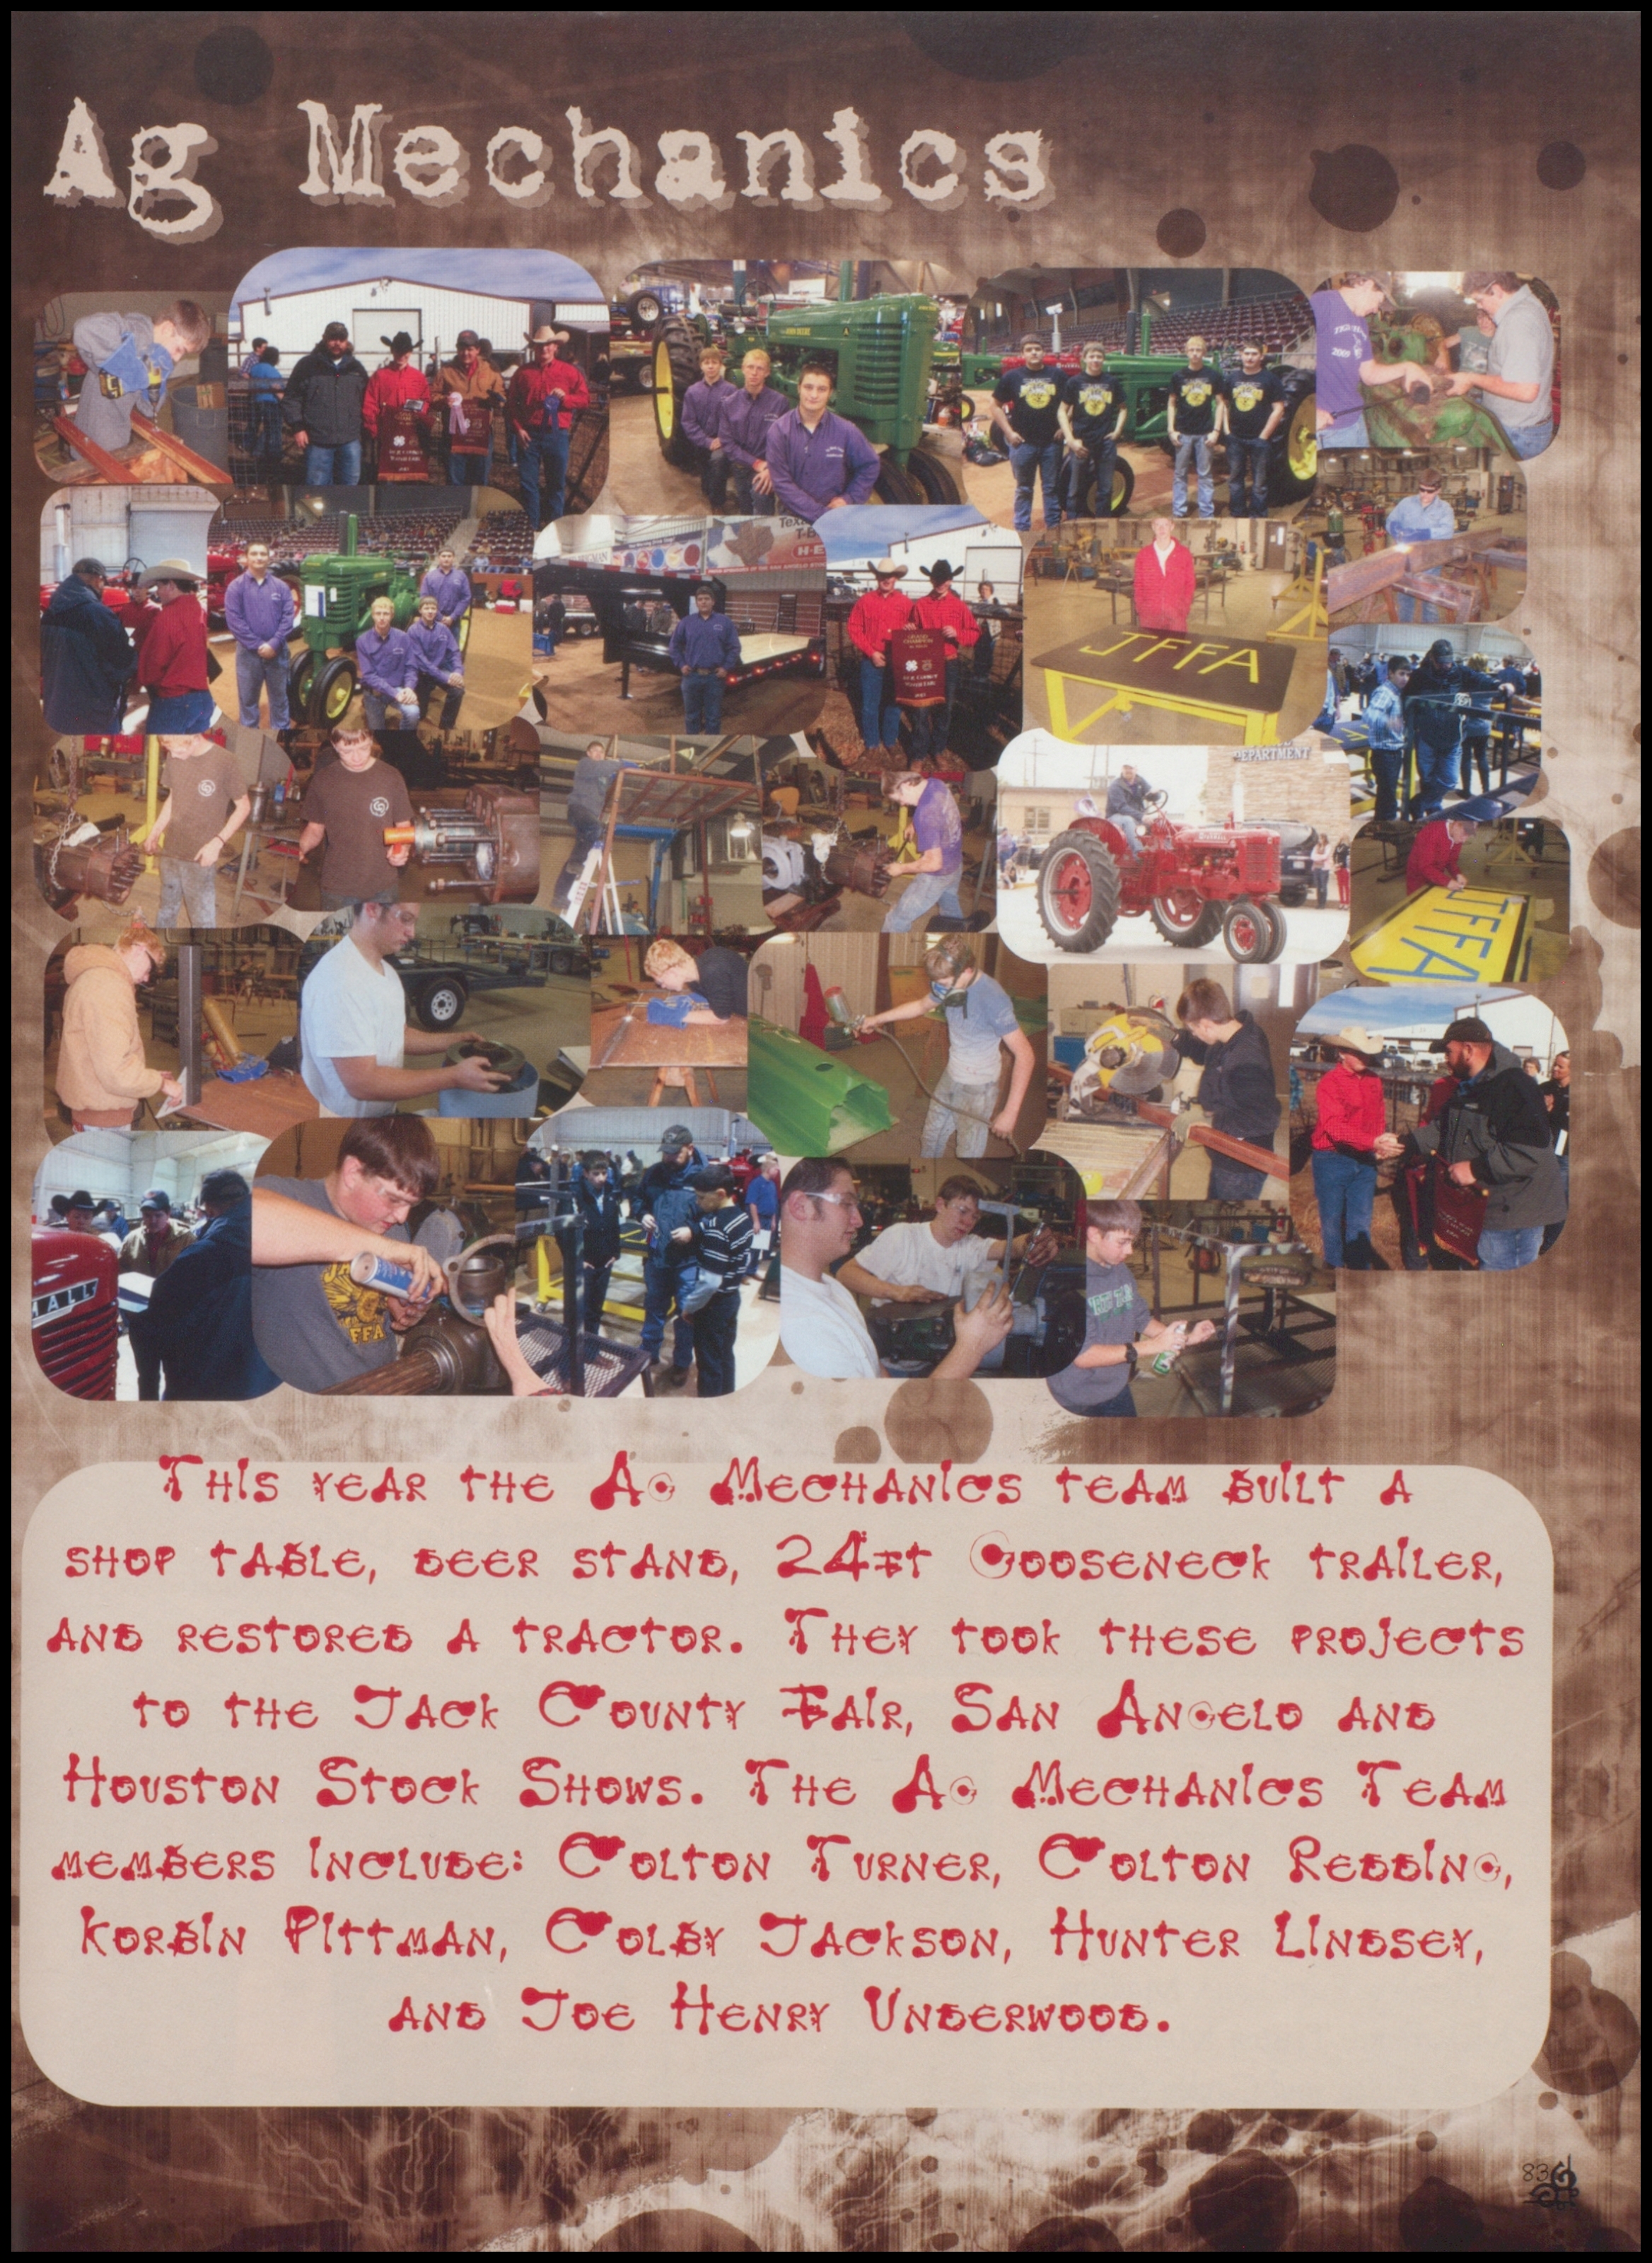 Ag Mechanics
JOHN DEERE
A
2009
Texas
T-B
H-E
GRAND
CHAMPION
JFFA
DEPARTMENT
JFFA
MALL
FFA
This year the Ag Mechanics team built a
shop table, deer stand, 24ft Gooseneck trailer,
and restored a tractor. They took these projects
to the Jack County Fair, San Angelo and
Houston Stock Shows. The Ag Mechanics Team
members include: Colton Turner, Colton Redding,
Korbin Pittman, Colby Jackson, Hunter Lindsey,
and Joe Henry Underwood.
83